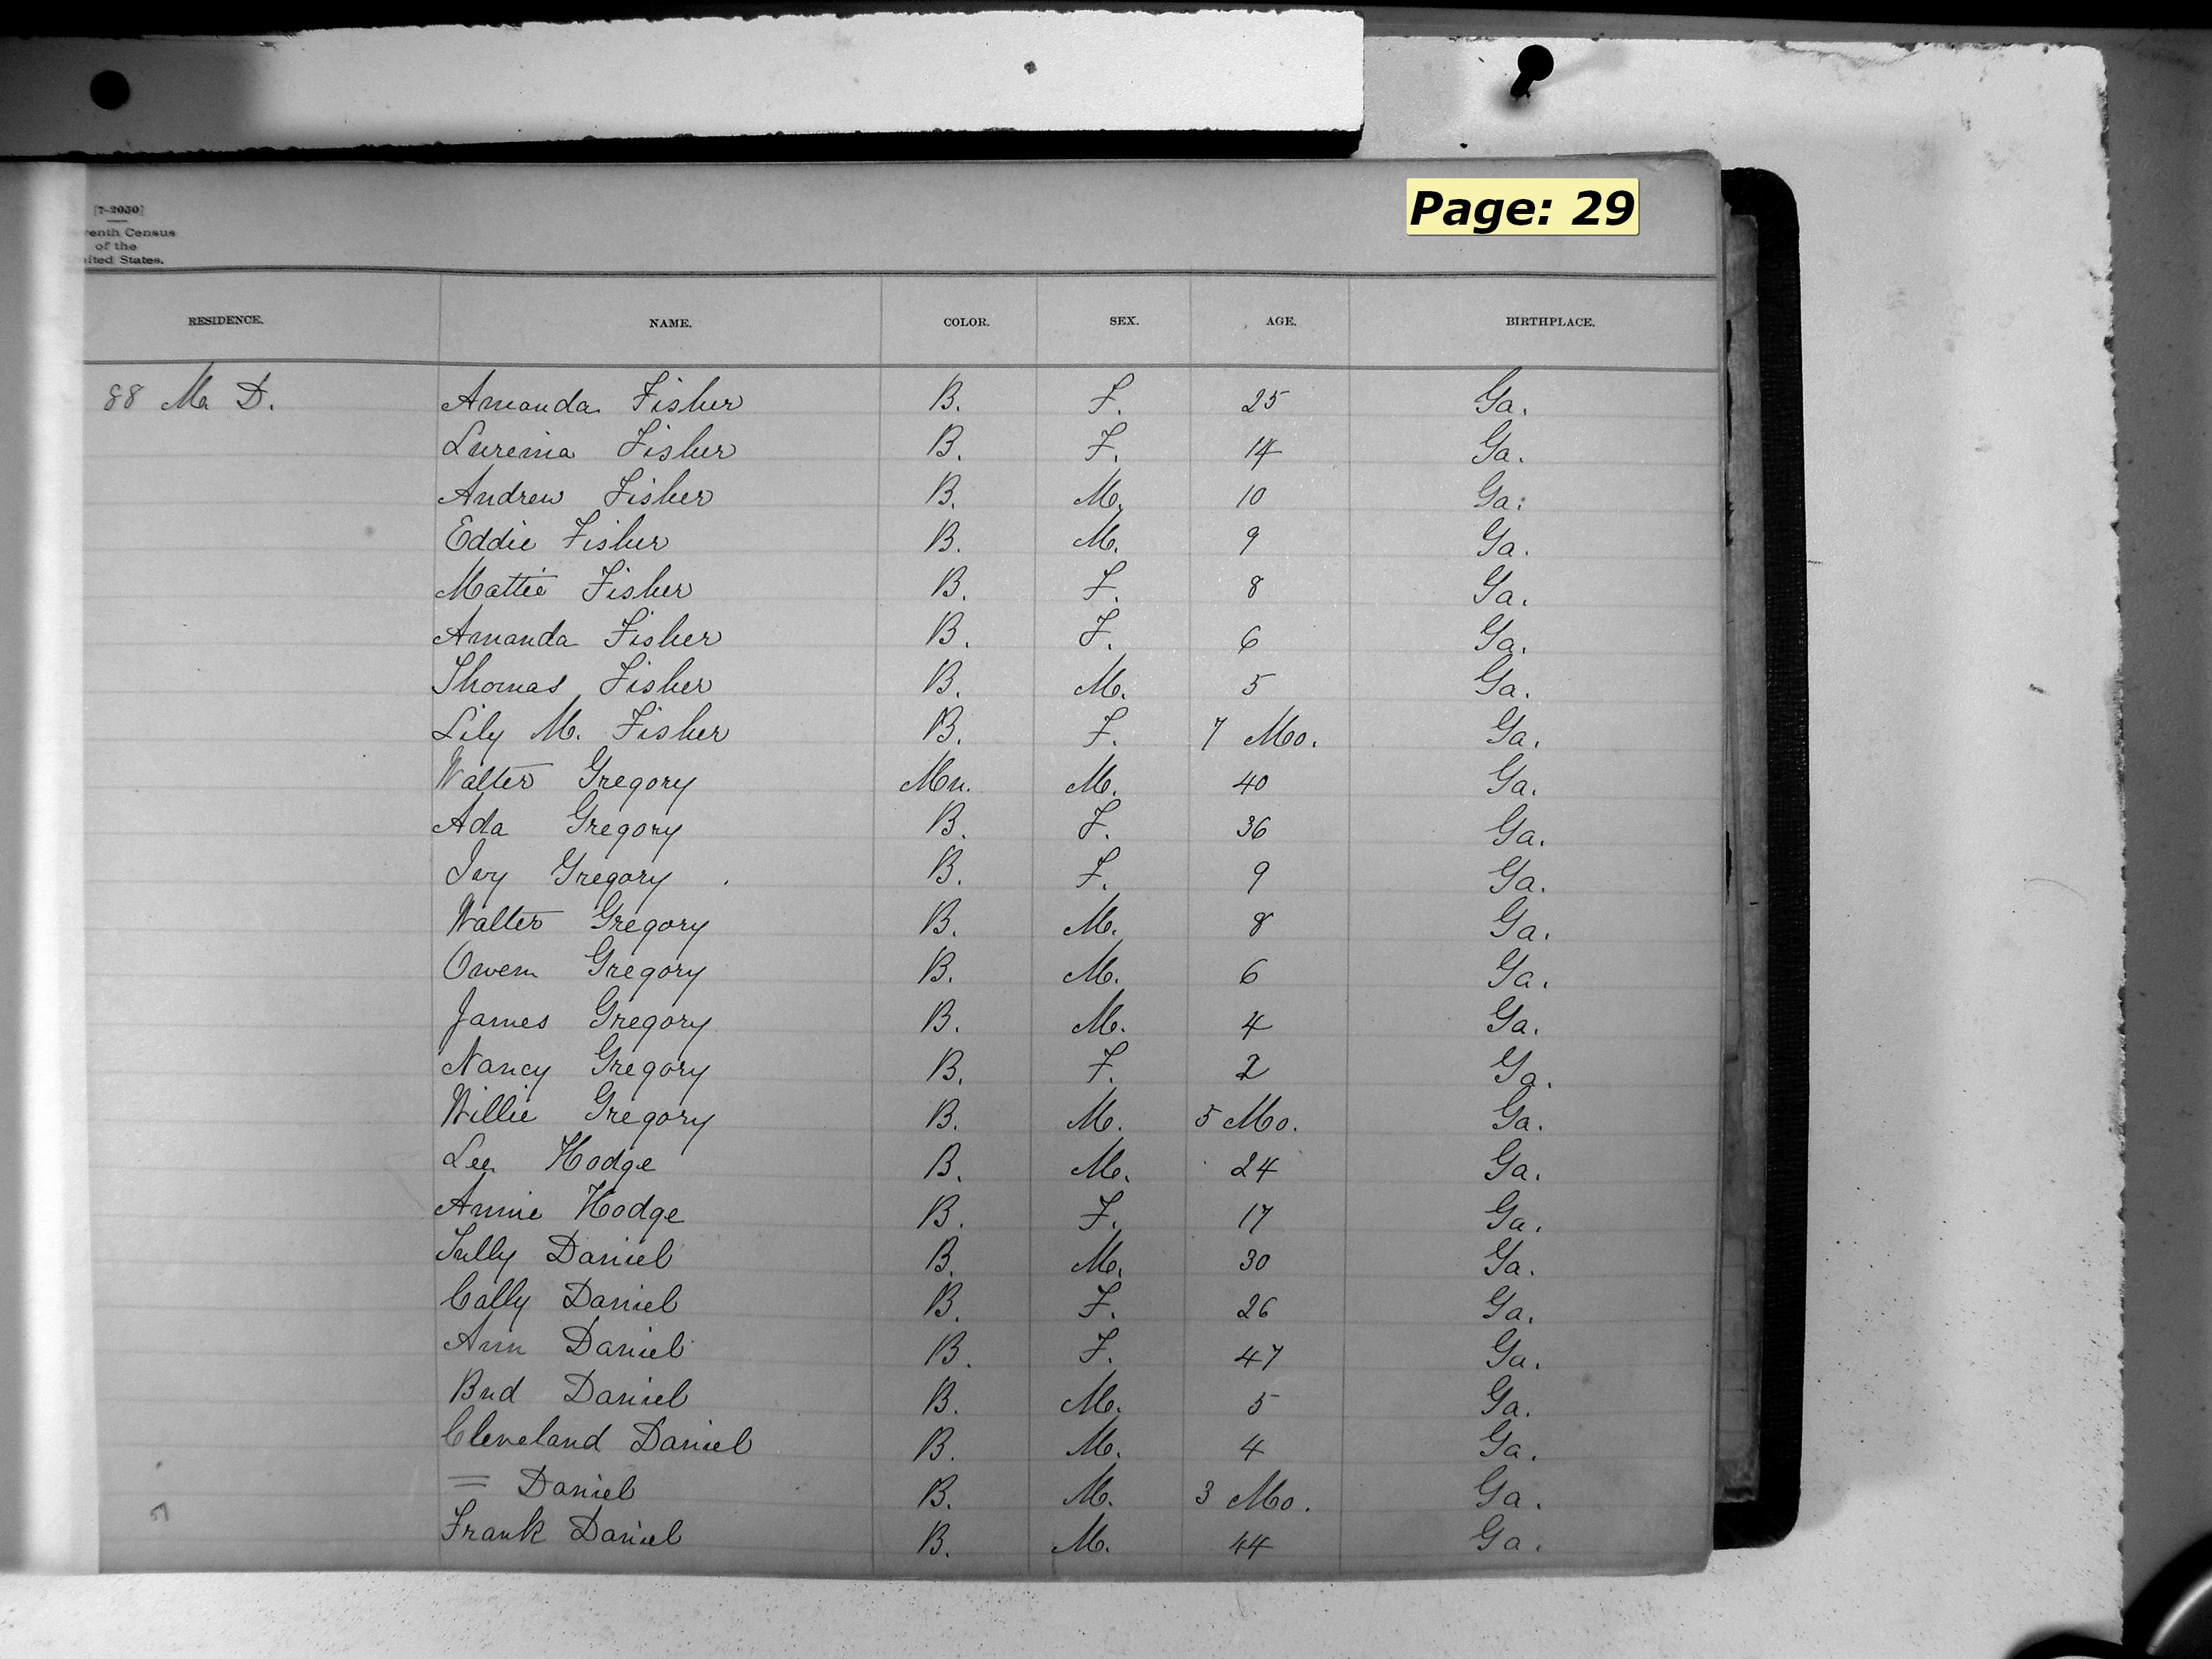 Page: 29
[7-2050]
venth Census
of the
nited States.
RESIDENCE. NAME. COLOR. SEX. AGE. BIRTHPLACE.
88 M. D. Amanda Fisher B. F. 25 Ga.
Lurenia Fisher B. F. 14 Ga.
Andrew Fisher B. M. 10 Ga.
Eddie Fisher B. M. 9 Ga.
Mattie Fisher B. F. 8 Ga.
Amanda Fisher B. F. 6 Ga.
Thomas Fisher B. M. 5 Ga.
Lily M. Fisher B. F. 7 Mo. Ga.
Walter Gregory Mu. M. 40 Ga.
Ada Gregory B. F. 36 Ga.
Ivy Gregory B. F. 9 Ga.
Walter Gregory B. M. 8 Ga.
Owen Gregory B. M. 6 Ga.
James Gregory B. M. 4 Ga.
Nancy Gregory B. F. 2 Ga.
Willie Gregory B. M. 5 Mo. Ga.
Lee Hodge B. M. 24 Ga.
Annie Hodge B. F. 17 Ga.
Tully Daniel B. M. 30 Ga.
Cally Daniel B. F. 26 Ga.
Ann Daniel B. F. 47 Ga.
Bud Daniel B. M. 5 Ga.
Cleveland Daniel B. M. 4 Ga.
= Daniel B. M. 3 Mo. Ga.
Frank Daniel B. M. 44 Ga.